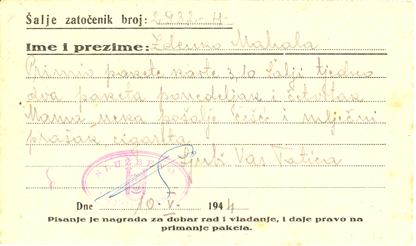 Šalje zatočenik broj: 2932-4
Ime i prezime: Zdenko Mahala
Primio pakete karte 3, 10 Šalji tjedno
dva paketa ponedeljak i četvrtak
Mama neka pošalje i mlječni
prašak cigareta
Ljubi Vas Tatica
SLUŽBENO
Dne 10-V- 1944
Pisanje je nagrada za dobar rad i vladanje, i daje pravo na
primanje paketa.